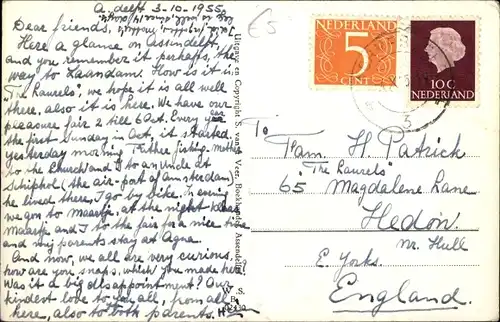 A,delft 3-10-1955
Dear friends,
Here a glance on Assendelft,
and you remember it perhaps, the
way to Zaandam! How is it in
"The Laurels", we hope it is all well
there, also it is here. We have our
pleasure fair 2 till 6 Oct. Every year
the first Sunday in Oct, it started.
Yesterday morning Father fishing, mother
to the Church and I to an Uncle at
Schiphol (the air-port of Amsterdam)
he lived there, I go by bike. In evening
we gon to Maartje, at the night Klaas,
Maartje and I to the fair for a nice time
and my parents stay at Agne.
And now, we all are very curious,
how are you snaps, which you made here.
Was it a big disappointment? Our
kindest love to you all, from all
here, also to both parents.
Uitgave en Copyright S. v. d. Veer, Boekhandel, Assendelft
W. S.
B.
NEDERLAND
5
CENT
10 C
NEDERLAND
5
£5
To
Fam. H. Patrick
"The Laurels"
65 Magdalene Lane
Hedon
nr. Hull
E. Yorks.
England.